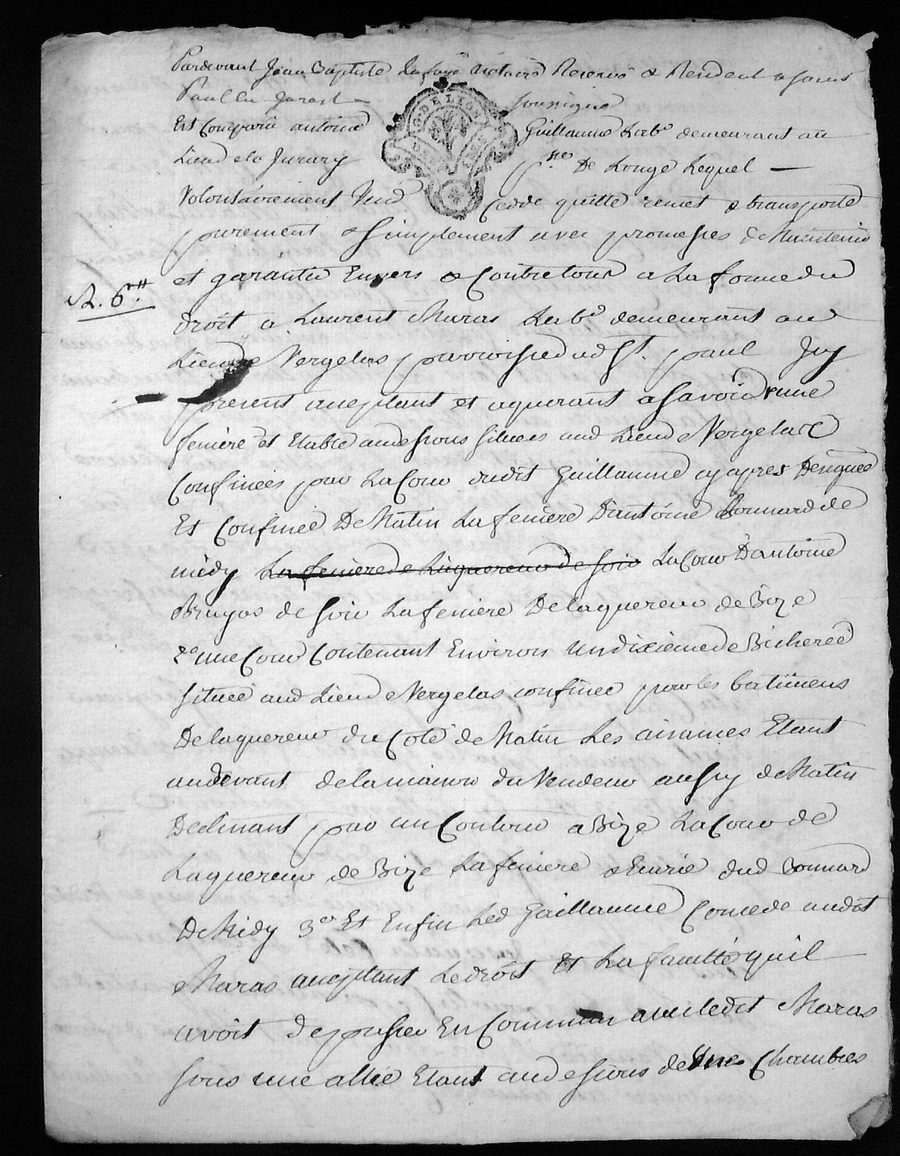 Pardevant Jean Baptiste Lafay Notaire Reservé & Resident a saint
Paul En Jarest soussigné
Est Comparu antoine Guillaume Lab.r demeurant au
Lieu de la Jurary p.sse De Longe Lequel
Volontairement Vend Cedde quitte remet & transporte
purement & simplement avec promesses de Maintenir
et garantir Envers & Contre tous a La forme du
droit a Laurent Maras Lab.r demeurant au
R. 6.tt
Lieu de Vergelas parroisse dud St. paul Icy
present acceptant et aquerant a savoir une
feniere et Etable audessous situees aud Lieu de Vergelas
Confinées par La Cour dudit Guillaume cy apres Designée
Et Confinée De Matin La feniere D'antoine Bonnard de
midy La feniere de Laquereur de soir La Cour D'antoine
de soir La feniere De laquereur de Bize
2.o une Cour Contenant Environ un dixieme de Bicherée
située aud Lieu de Vergelas confinée par les batimens
De laquereur du Coté de Matin Les Etant
audevant de la maison du Vendeur aussy de Matin
Declinant par un Contour a Bize La Cour de
Laquereur de Bize La feniere & Ecurie dud Bonnard
De Midy 3.o Et Enfin Led Guillaume Concede audit
Maras acceptant Le droit Et La faculté quil
avoit De passer En Commun avec ledit Maras
sous une allée Etant au dessous de Chambres